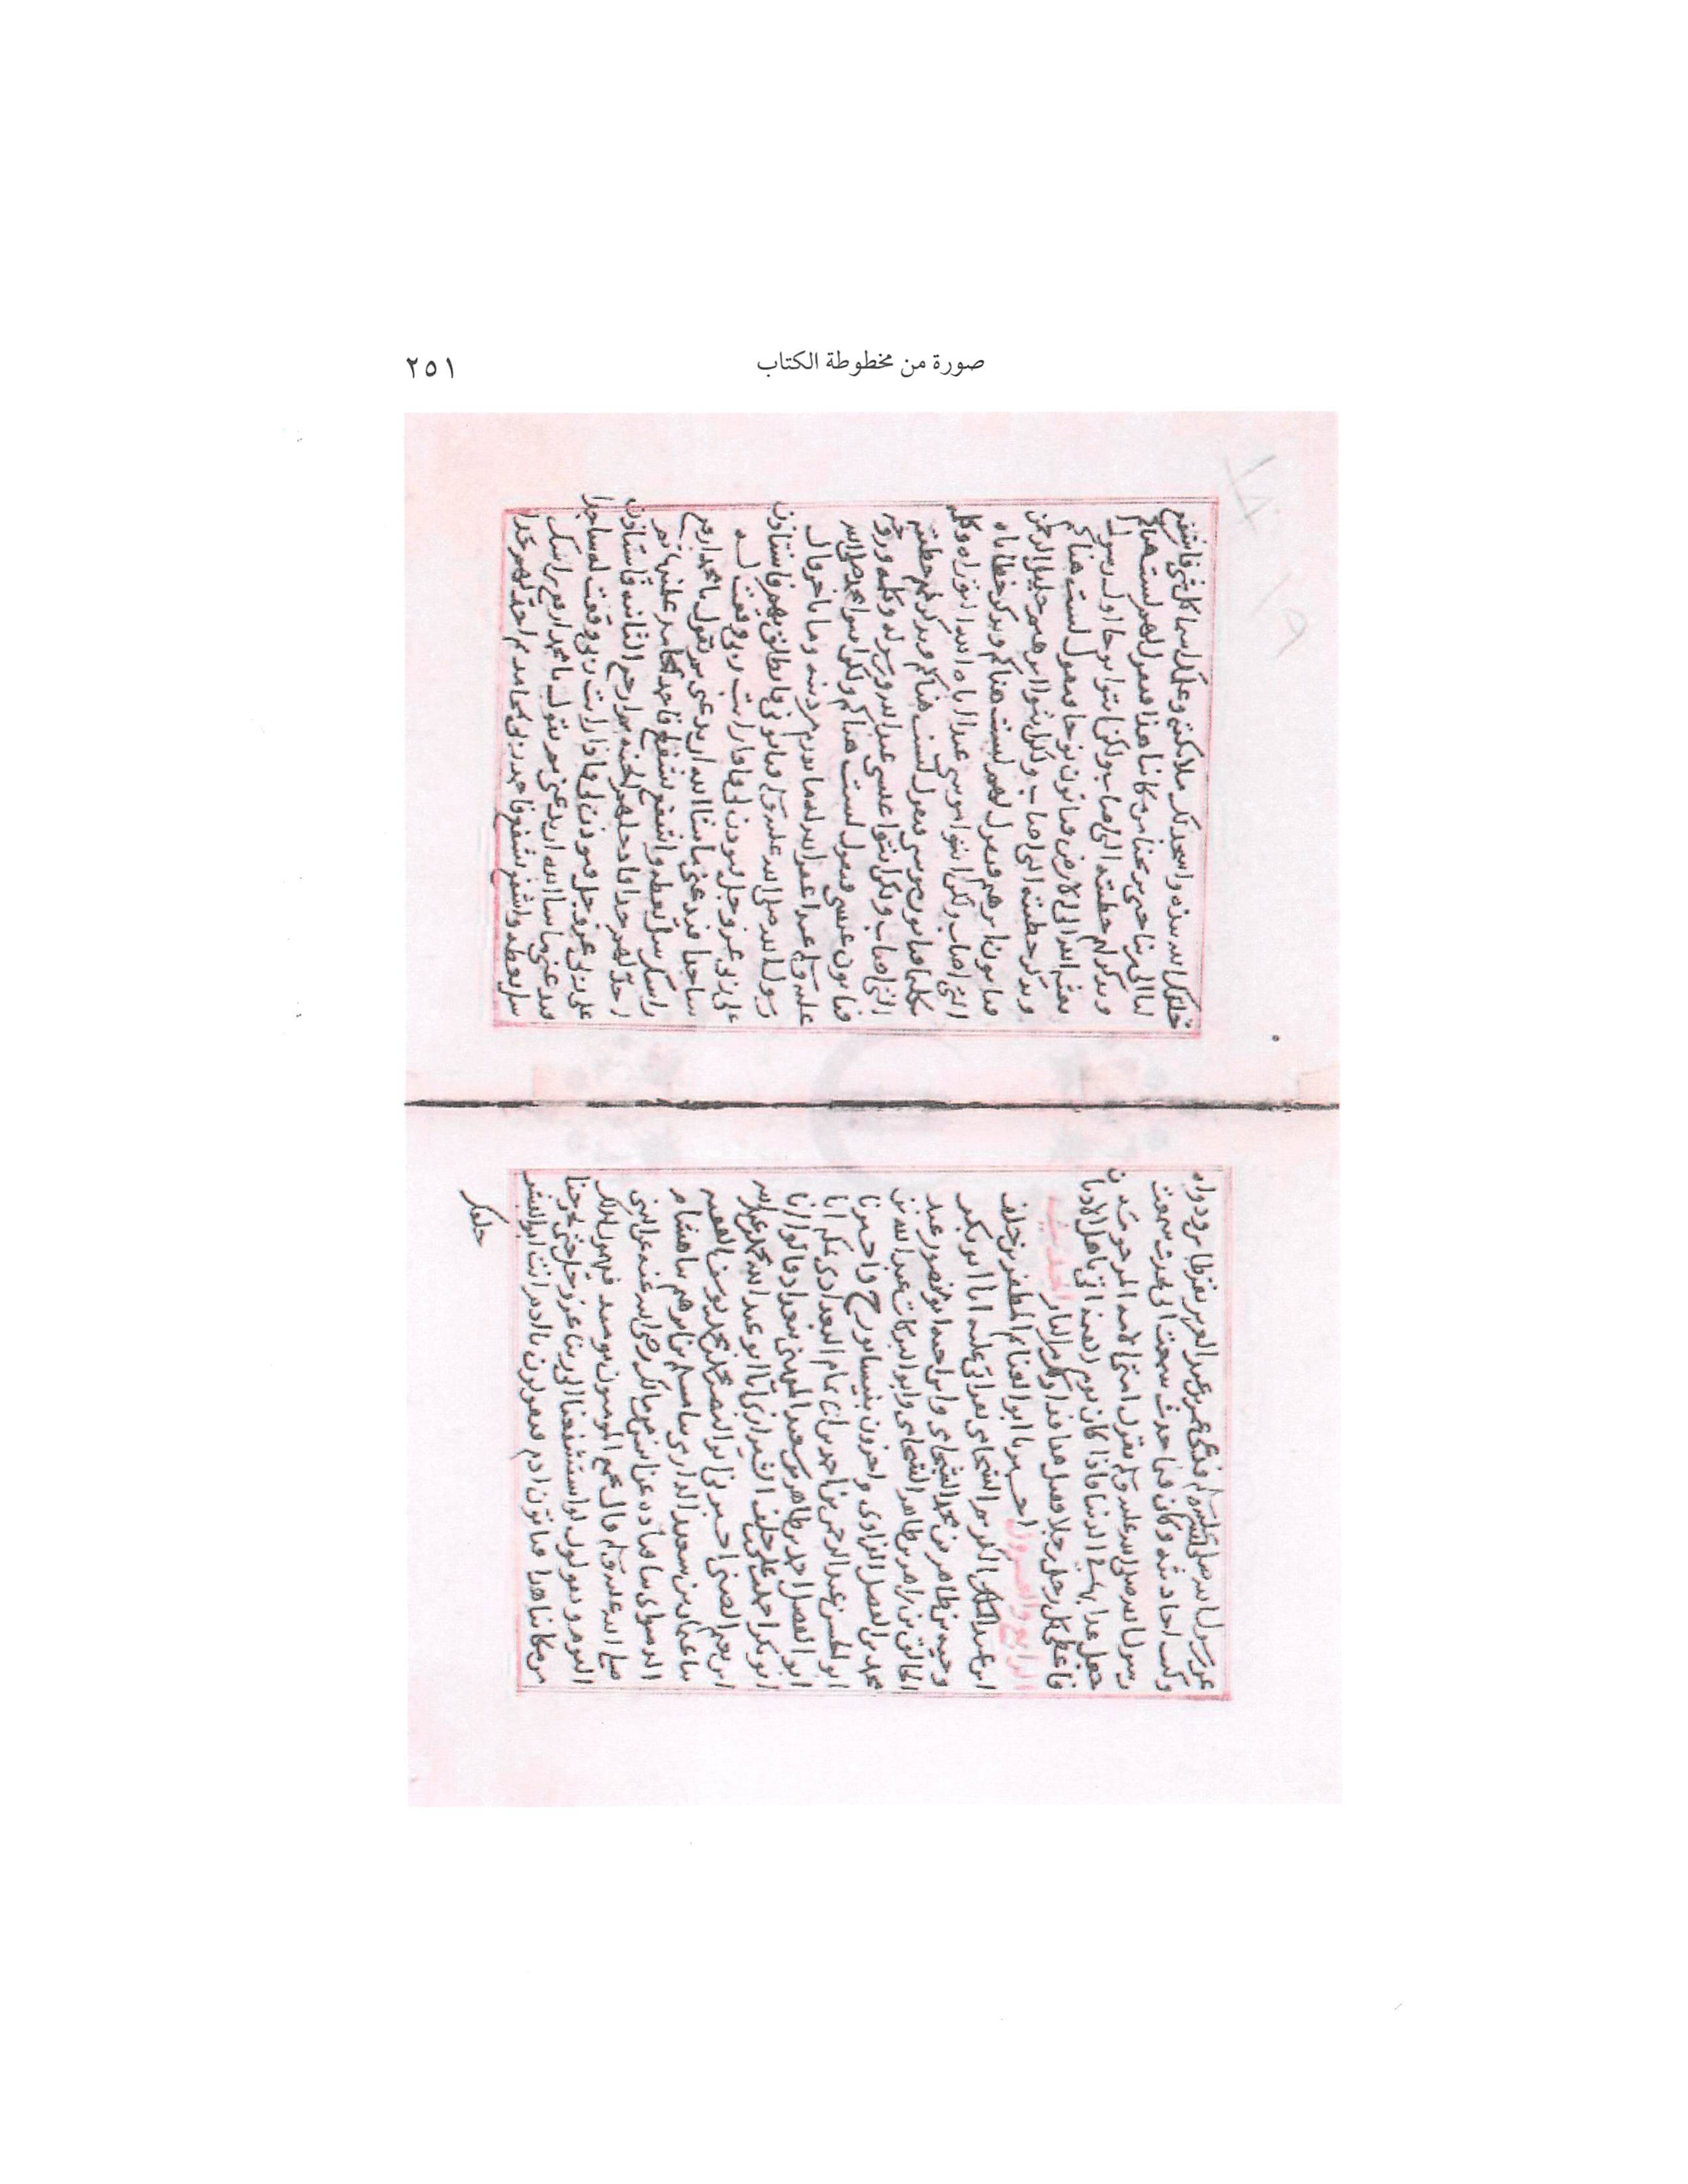 صورة من مخطوطة الكتاب
٢٥١
عن رسول الله صلى الله عليه وسلم عمر بن عبد العزيز بقرطاس ودواه
وكتب احاديثه وكان فيما حدث سمعت ابي يحدث سمعت
رسول الله صلى الله عليه وسلم يقول امتي الامه المرحومه
جعل عذابها في الدنيا فاذا كان يوم القيمه اتي باهل الاديان
فاعطي كل رجل رجلا فيقال هذا فداوك من النار الحديث
الرابع والعشرون اخبرنا ابو الغنايم المظفر بن خلف
ابن عبد الكريم الشحامي بقراتي عليه انا ابو بكر
وجيه بن طاهر بن محمد الشحامي واخبرنا ابو منصور عبد
الخالق بن زاهر بن طاهر الشحامي وابو البركات عبد الله بن
محمد بن الفضل الفراوي واخرون بنيسابور ح واخبرنا
ابو الحسن عبد الرحمن بن احمد البغدادي انا
ابو الفضل احمد بن طاهر بن سعيد الميهني ببغداد قالوا انا
ابو بكر احمد بن علي بن خلف الشيرازي انا ابو عبد الله محمد بن عبد الله
ابن نعيم الضبي اخبرني ابو النضر محمد بن محمد بن يوسف الفقيه
نا عثمان بن سعيد الدارمي نا مسلم بن ابرهيم نا هشام
الدستواي نا قتاده عن انس بن مالك رضي الله عنه عن النبي
صلى الله عليه وسلم قال يجمع المومنون يوميذ فيهمون لذلك
اليوم ويقولون لو استشفعنا الى ربنا عز وجل حتى يريحنا
من مكاننا هذا فياتون ادم فيقولون يا ادم انت ابو البشر
خلقك
خلقك الله بيده واسجد لك ملايكته وعلمك اسما كل شي فاشفع
لنا الى ربنا حتى يريحنا من مكاننا هذا فيقول لهم لست هناكم
ويذكر لهم خطيته التي اصاب ولكن ايتوا نوحا اول رسول
بعثه الله الى الارض فياتون نوحا فيقول لست هناكم
ويذكر خطيته التي اصاب ولكن ايتوا ابرهيم خليل الرحمن
فياتون ابرهيم فيقول لهم لست هناكم ويذكر خطاياه
التي اصاب ولكن ايتوا موسى عبدا اتاه الله التوراه وكلمه
تكليما فياتون موسى فيقول لست هناكم ويذكر لهم خطيته
التي اصاب ولكن ايتوا عيسى عبد الله ورسوله وكلمته وروحه
فياتون عيسى فيقول لست هناكم ولكن ايتوا محمد صلى الله
عليه وسلم عبدا غفر الله له ما تقدم من ذنبه وما تاخر قال
رسول الله صلى الله عليه وسلم فياتوني فانطلق معهم فاستاذن
على ربي عز وجل فيوذن لي فاذا رايت ربي وقعت له
ساجدا فيدعني ما شا الله ان يدعني ثم يقول يا محمد ارفع
راسك سل تعطه واشفع تشفع فاحمده بمحامد علمنيها ثم
احد لهم حدا فادخلهم الجنه ثم ارجع الثانيه فاستاذن
على ربي عز وجل فيوذن لي فاذا رايت ربي وقعت له ساجدا
فيدعني ما شا الله ان يدعني ثم يقول يا محمد ارفع راسك
سل تعطه واشفع تشفع فاحمد ربي بمحامد ثم احد لهم حدا